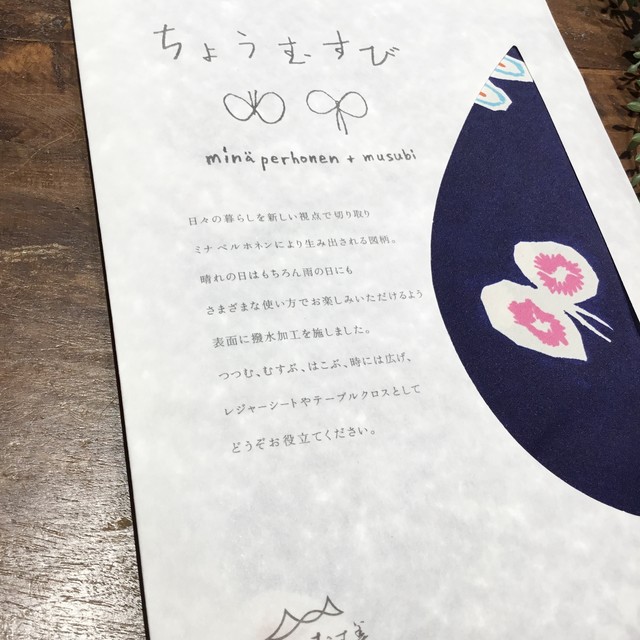 ちょうむすび
minä perhonen + musubi
日々の暮らしを新しい視点で切り取り
ミナ ペルホネンにより生み出される図柄。
晴れの日はもちろん雨の日にも
さまざまな使い方でお楽しみいただけるよう
表面に撥水加工を施しました。
つつむ、むすぶ、はこぶ、時には広げ、
レジャーシートやテーブルクロスとして
どうぞお役立てください。